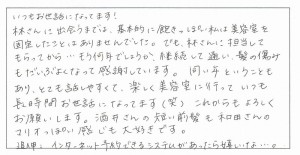 いつもお世話になってます!
林さんに出会うまでは、基本的に飽きっぽい私は美容室を
固定したことはありませんでした。でも、林さんに担当して
もらってから…もう何年でしょうか、継続して通い、髪の傷み
もだいぶよくなって感謝しています。同い年ということも
あり、とても話しやすくて、楽しく美容室に行っていつも
長時間お世話になってます(笑)これからもよろしく
お願いします。酒井さんの短い前髪も和田さんの
マリオっぽい感じも大好きです。
インターネット予約できるシステムがあったら嬉しいな…。